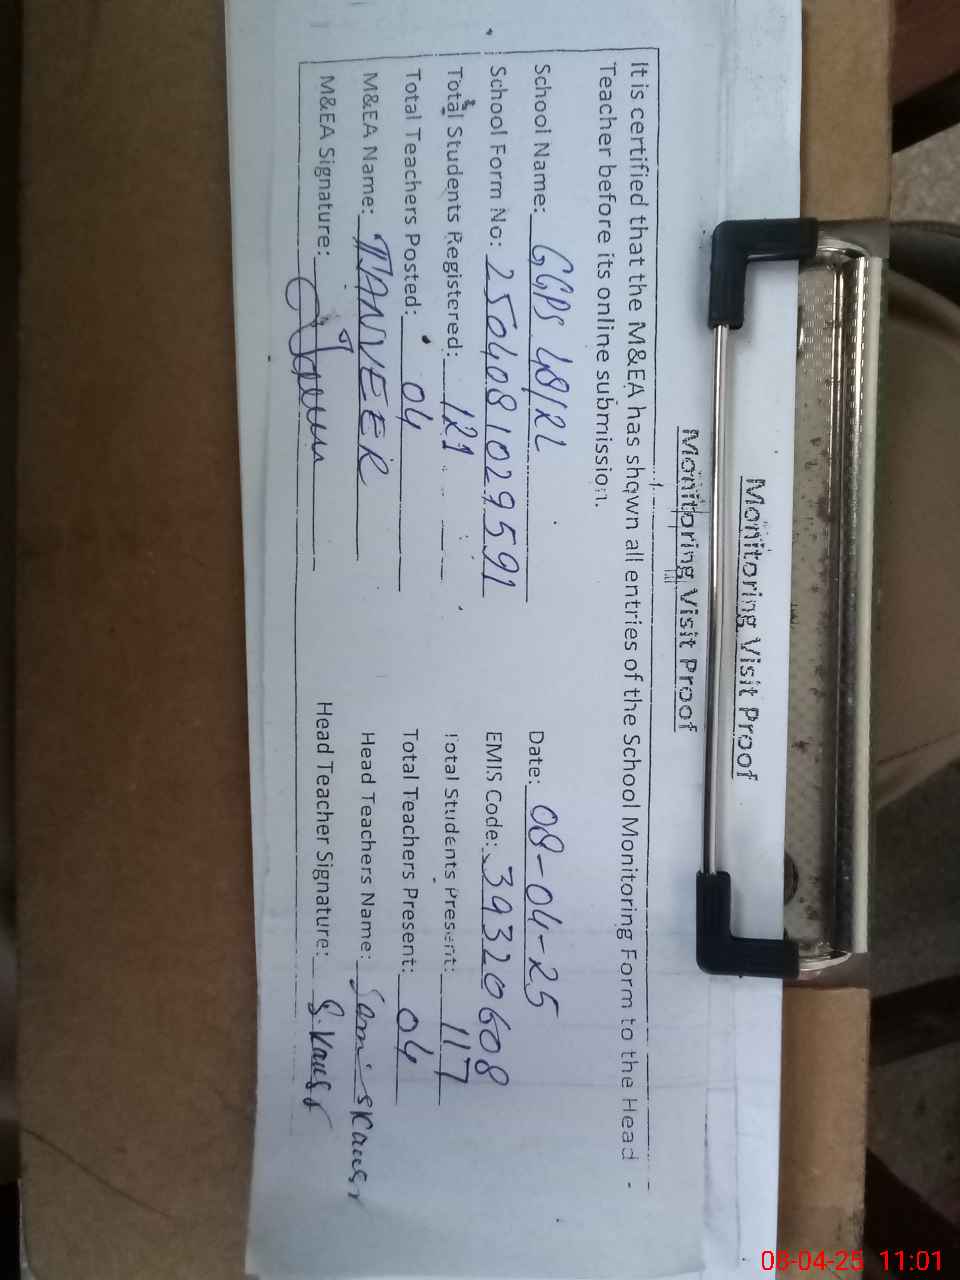 Monitoring Visit Proof
Monitoring Visit Proof
It is certified that the M&EA has shown all entries of the School Monitoring Form to the Head
Teacher before its online submission.
School Name: GGPS 48/2L Date: 08-04-25
School Form No: 2504081029591 EMIS Code: 39320608
Total Students Registered: 121 Total Students Present: 117
Total Teachers Posted: 04 Total Teachers Present: 04
M&EA Name: TANVEER Head Teachers Name:
M&EA Signature: Head Teacher Signature:
08-04-25 11:01